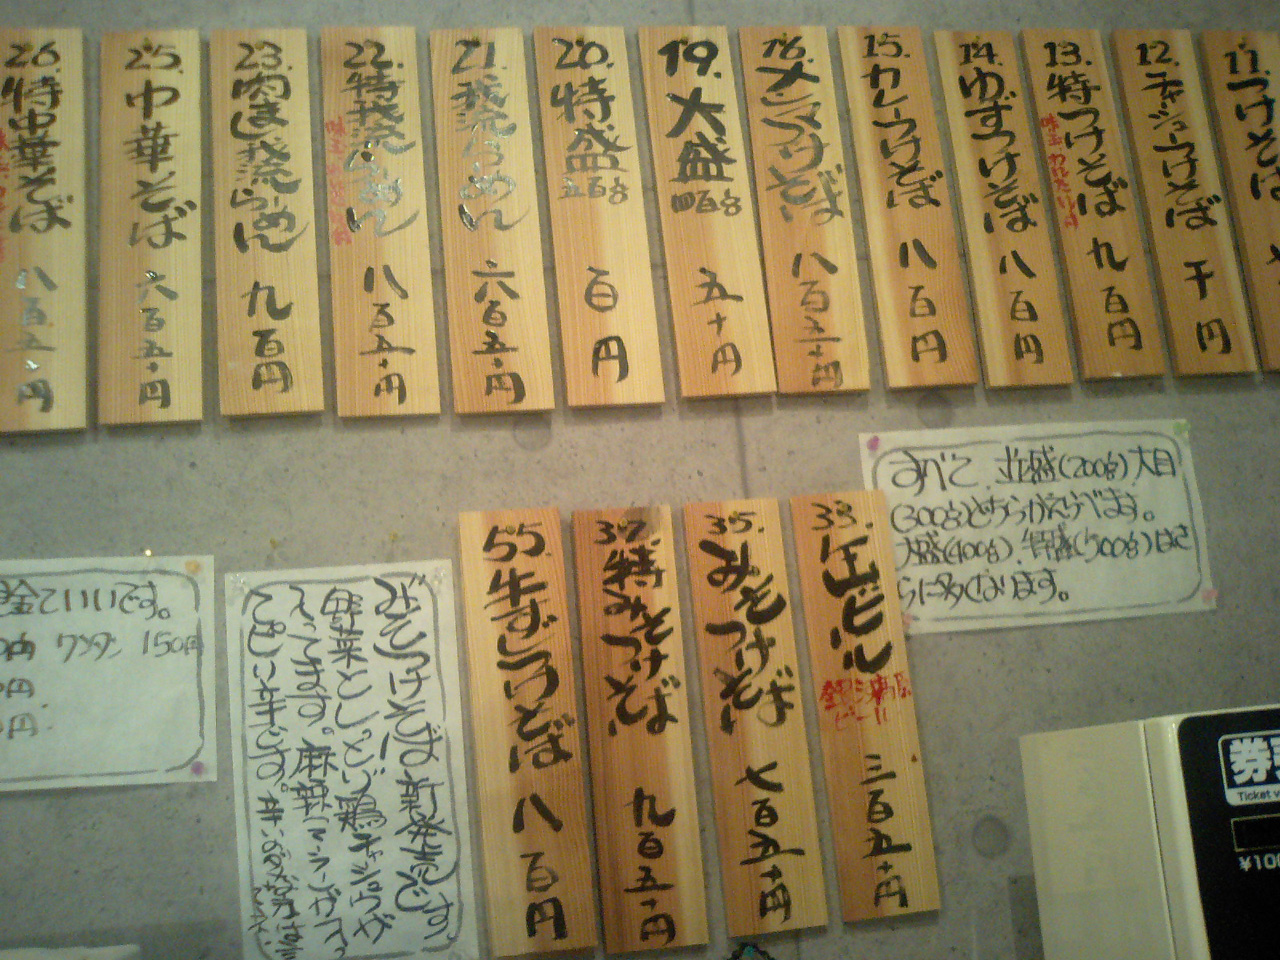 11.
つけそば
12.
チャーシューつけそば
千円
13.
特つけそば
九百円
14.
ゆずつけそば
八百円
15.
カレーつけそば
八百円
16.
メンマつけそば
八百五十円
19.
大盛
四百g
五十円
20.
特盛
五百g
百円
21.
我流らーめん
六百五十円
22.
特我流らーめん
八百五十円
23.
肉まし我流らーめん
九百円
25.
中華そば
六百五十円
26.
特中華そば
八百五十円
すべて、並盛(200g)大目
(300g)どちらかえらべます。
大盛(400g)、特盛(500g)はさ
らに多くなります。
33.
缶ビール
三百五十円
35.
みそつけそば
七百五十円
37.
特みそつけそば
九百五十円
55.
牛すじつけそば
八百円
みそつけそば新発売です
野菜と
てます。麻辣
金でいいです。
ワンタン 150円
円
円
券
Ticket
¥100